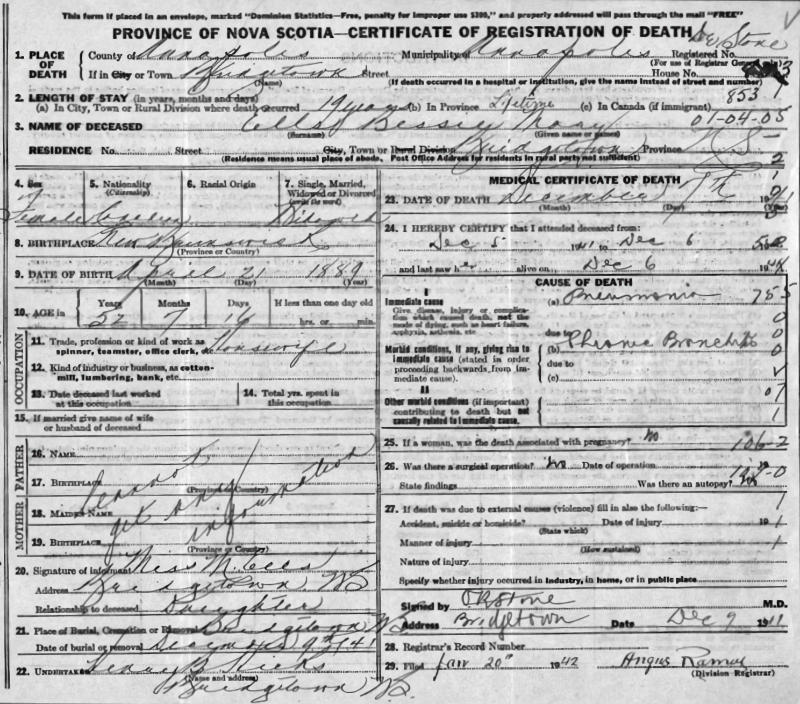 This form if placed in an envelope, marked "Dominion Statistics—Free, penalty for improper use $300," and properly addressed will pass through the mail "FREE"
PROVINCE OF NOVA SCOTIA—CERTIFICATE OF REGISTRATION OF DEATH
Dr Stone
1. PLACE OF DEATH
County of Annapolis Municipality of Annapolis Registered No.
(For use of Registrar General only)
If in City or Town Bridgetown Street House No. 3
(Name) (If death occurred in a hospital or institution, give the name instead of street and number)
2. LENGTH OF STAY (in years, months and days)
(a) In City, Town or Rural Division where death occurred 19 years (b) In Province Lifetime (c) In Canada (if immigrant) 853
01-04-05
3. NAME OF DECEASED Ells Bessie
(Surname) (Given name or names)
RESIDENCE No. Street City, Town or Rural Division Bridgetown Province N S
(Residence means usual place of abode. Post Office Address for residents in rural parts not sufficient)
2
4. Sex Female
5. Nationality (Citizenship)
6. Racial Origin
7. Single, Married, Widowed or Divorced (write the word) Widowed
8. BIRTHPLACE New Brunswick
(Province or Country)
9. DATE OF BIRTH April 21 1889
(Month) (Day) (Year)
10. AGE in Years Months Days If less than one day old
52 7 16 hrs. or min.
OCCUPATION
11. Trade, profession or kind of work as spinner, teamster, office clerk, etc. Housewife
12. Kind of industry or business, as cotton-mill, lumbering, bank, etc.
13. Date deceased last worked at this occupation
14. Total yrs. spent in this occupation
15. If married give name of wife or husband of deceased
FATHER
16. NAME
17. BIRTHPLACE
(Province or Country)
MOTHER
18. MAIDEN NAME
19. BIRTHPLACE
(Province or Country)
Cannot get any information
20. Signature of informant Miss M. Ells
Address Bridgetown NS
Relationship to deceased Daughter
21. Place of Burial, Cremation or Removal Bridgetown NS
Date of burial or removal December 9th 1941
22. UNDERTAKER Henry B. Hicks
(Name and address)
Bridgetown NS
MEDICAL CERTIFICATE OF DEATH
23. DATE OF DEATH December 7th 1941
(Month) (Day)
24. I HEREBY CERTIFY that I attended deceased from:
Dec 5 1941 to Dec 6
and last saw her alive on Dec 6 1941
CAUSE OF DEATH
I
Immediate cause (a) Pneumonia 755
Give disease, injury or complication which caused death, not the mode of dying, such as heart failure, asphyxia, asthenia, etc.
due to
Morbid conditions, if any, giving rise to immediate cause (stated in order proceeding backwards from immediate cause).
(b) Chronic Bronchitis
due to
(c)
II
Other morbid conditions (if important) contributing to death but not causally related to immediate cause.
07
1
25. If a woman, was the death associated with pregnancy? No 106-2
26. Was there a surgical operation? No Date of operation
State findings Was there an autopsy? No
27. If death was due to external causes (violence) fill in also the following:—
Accident, suicide or homicide? Date of injury 191
(State which)
Manner of injury
(How sustained)
Nature of injury
Specify whether injury occurred in industry, in home, or in public place
Signed by Stone M.D.
Address Bridgetown Date Dec 9
28. Registrar's Record Number
29. Filed Jan 20th 1942 Angus Ramey
(Division Registrar)